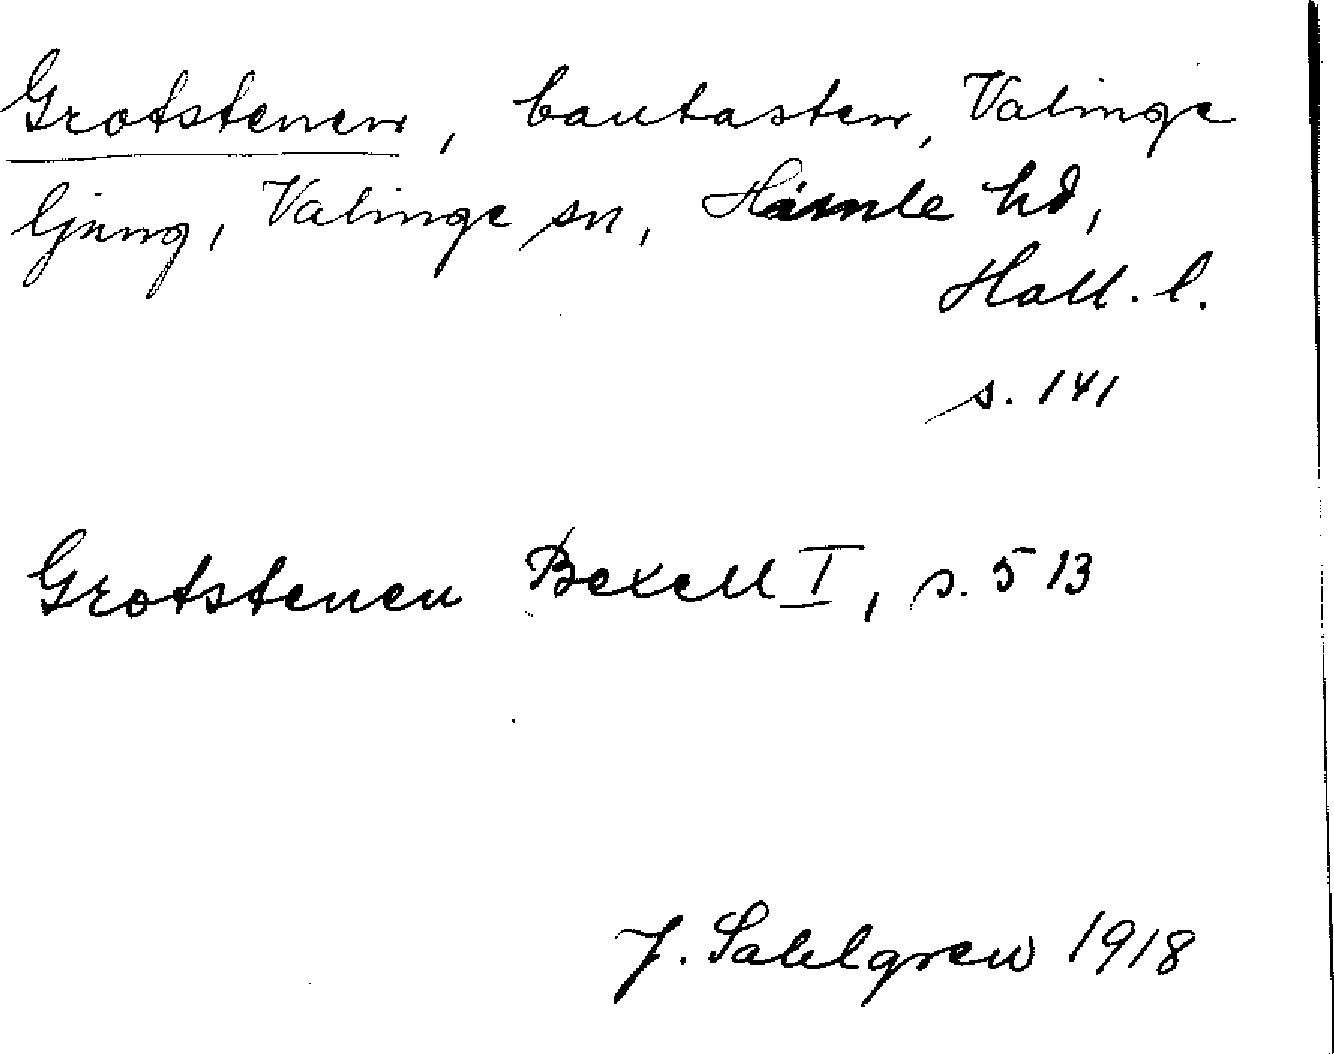 Grotstenen, bautasten, Valinge
ljung, Valinge sn, Himle hd,
Hall. l.
s. 141
Grotstenen Bexell I, s. 513
J. Sahlgren 1918